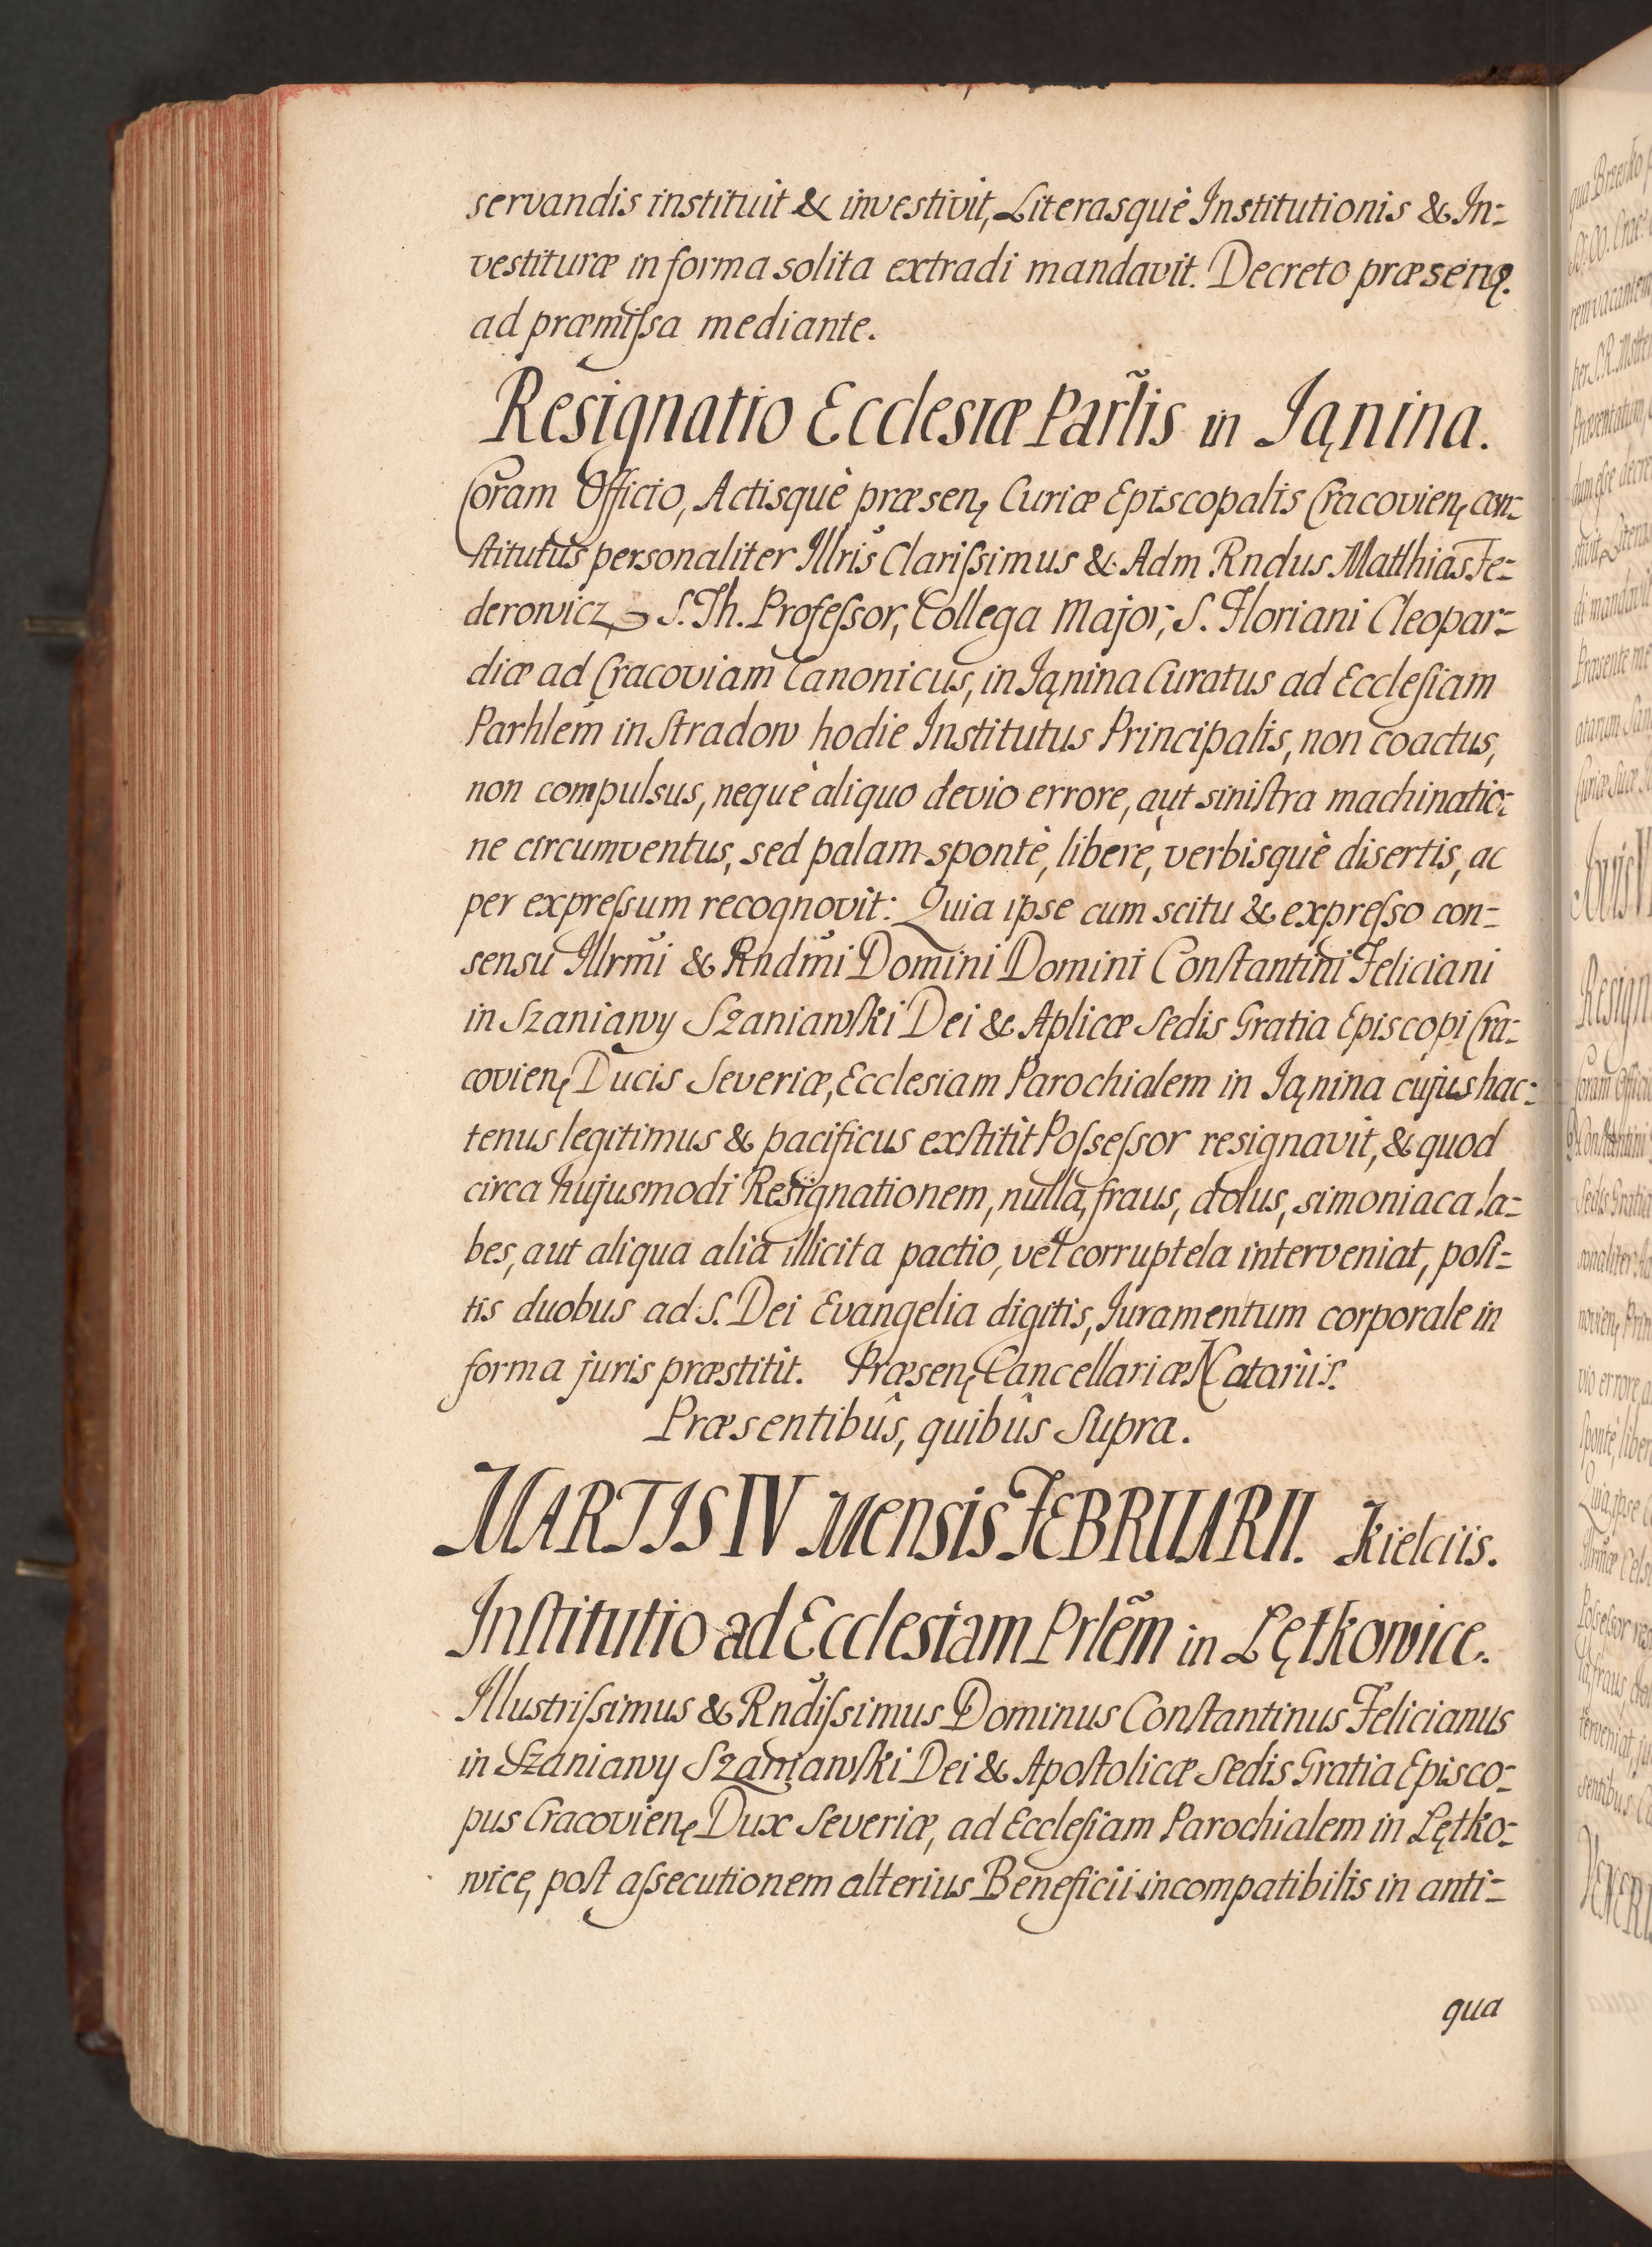 servandis instituit & investivit, Literasquè Institutionis & In=
vestituræ in forma solita extradi mandavit. Decreto præsenȩ.
ad præmißa mediante.
Resignatio Ecclesiæ Parl̃is in Iąnina.
Coram Officio, Actisquè præsenȩ Curiæ Episcopalis Cracovienȩ con=
stitutus personaliter Illris Clarißimus & Adm Rndus Matthias Fe=
derowicz S. Th. Profeßor, Collega Major, S. Floriani Cleopar=
diæ ad Cracoviam Canonicus, in Iąnina Curatus ad Ecclesiam
Parhlem in Stradow hodie Institutus Principalis, non coactus,
non compulsus, nequè aliquo devio errore, aut sinistra machinatio=
ne circumventus, sed palam spontè, liberè, verbisquè disertis, ac
per expreßum recognovit: Quia ipse cum scitu & expreßo con=
sensu Illrmi & Rndmi Domini Domini Constantini Feliciani
in Szaniawy Szaniawski Dei & Aplicæ Sedis Gratia Episcopi Cra=
covienȩ Ducis Severiæ, Ecclesiam Parochialem in Iąnina cujus hac=
tenus legitimus & pacificus exstitit Poßeßor resignavit, & quod
circa hujusmodi Resignationem, nulla, fraus, dolus, simoniaca la=
bes, aut aliqua alia illicita pactio, vel corruptela interveniat, posi=
tis duobus ad S. Dei Evangelia digitis, Iuramentum corporale in
forma juris præstitit. Præsenȩ Cancellariæ Notariis.
Præsentibûs, quibûs Supra.
MARTIS IV Mensis FEBRUARII. Kielciis.
Institutio ad Ecclesiam Prlẽm in Lętkowice.
Illustrißimus & Rndißimus Dominus Constantinus Felicianus
in Szaniawy Szaniawski Dei & Apostolicæ Sedis Gratia Episco=
pus Cracovienȩ Dux Severiæ, ad Ecclesiam Parochialem in Lętko=
wice, post aßecutionem alterius Beneficii incompatibilis in anti=
qua